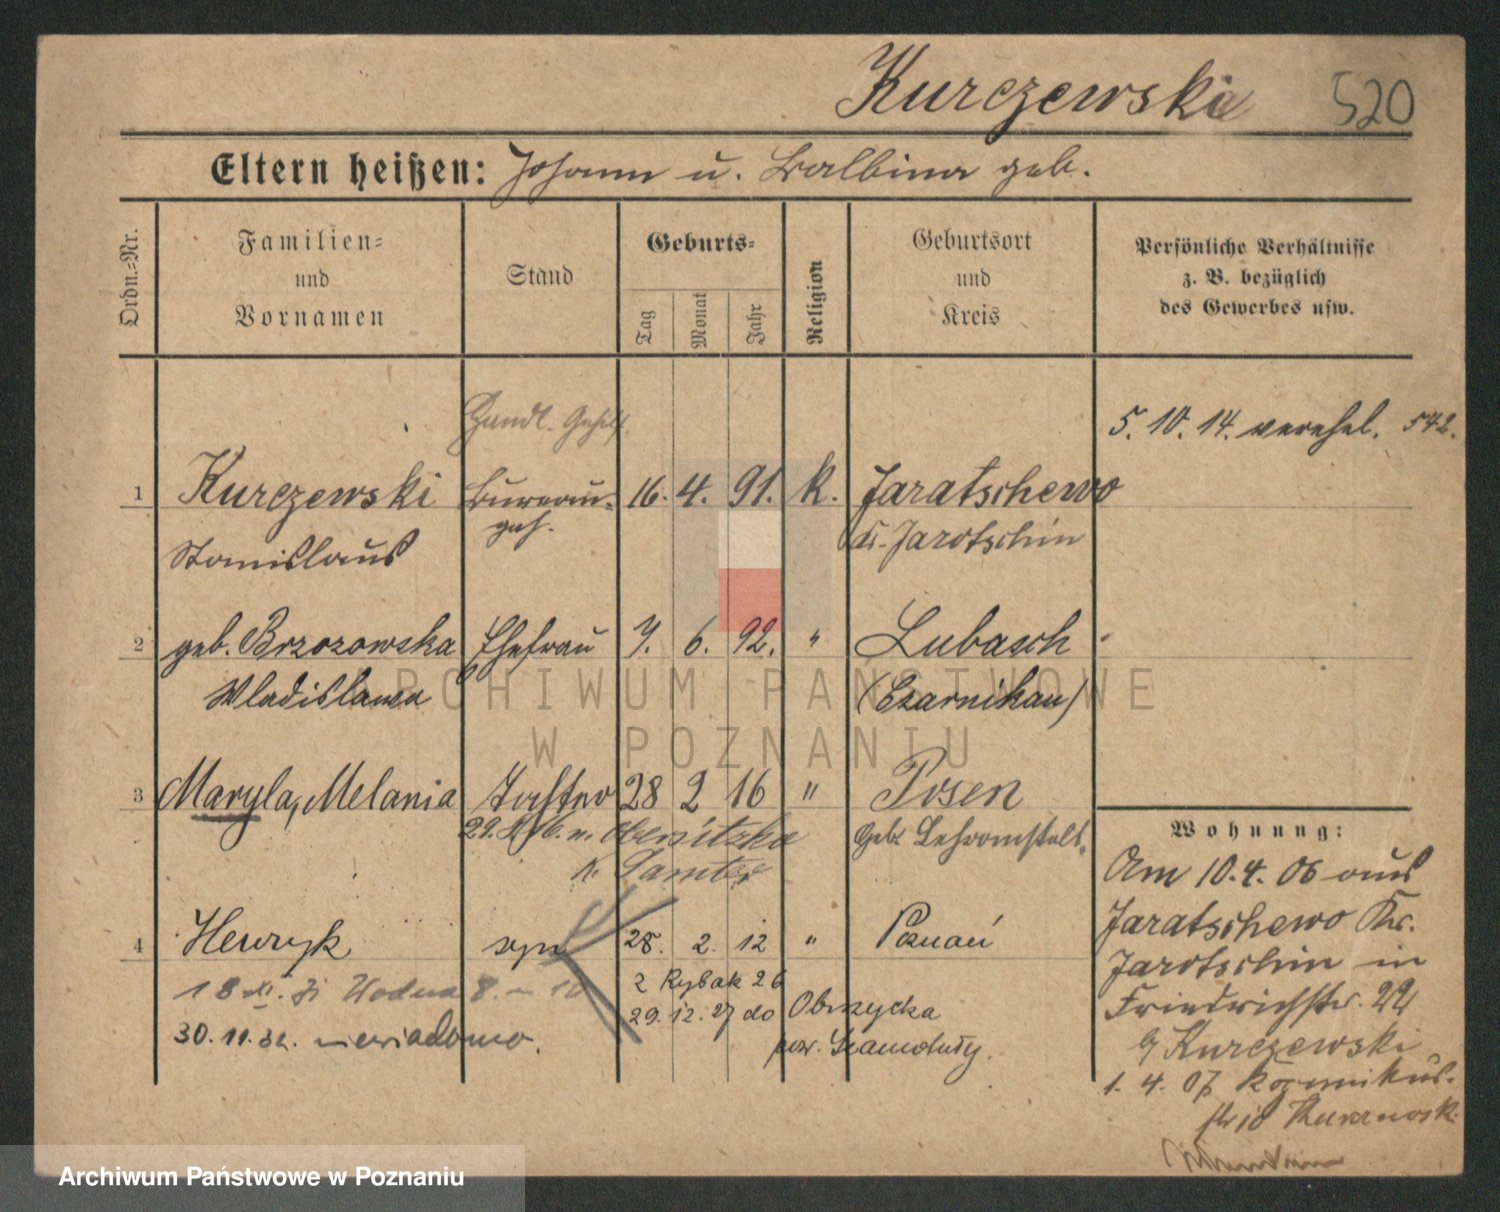 Kurczewski 520
Eltern heißen: Johann u. Balbina geb.
Ordn.=Nr.
Familien=
und
Vornamen
Stand
Geburts=
Tag
Monat
Jahr
Religion
Geburtsort
und
Kreis
Persönliche Verhältnisse
z. B. bezüglich
des Gewerbes usw.
Handl. Gehilf.
5. 10. 14. verehel. 542.
1 Kurczewski Bureau- 16. 4. 91. k. Jaratschewo
Stanislaus geh. Kr. Jarotschin
2 geb. Brzozowska Ehefrau 7. 6. 92. " Lubasch
Wladislawa (Czarnikau)
3 Maryla, Melania Tochter 28 2 16 " Posen
29. n. Obersitzko Geb. Lehranstalt.
K. Samter
4 Henryk syn 28. 2. 12 " Poznań
18 XI. Wodna 8. m 10 2 Rybak 26
29. 12. 27 do Obrzycka
30. 11. 32. niewiadomo. pow. Szamotuły.
Wohnung:
Am 10. 4. 06 aus
Jaratschewo Kr.
Jarotschin in
Friedrichstr. 22
b/ Kurczewski
1. 4. 07
str 10
ARCHIWUM PAŃSTWOWE
W POZNANIU
Archiwum Państwowe w Poznaniu